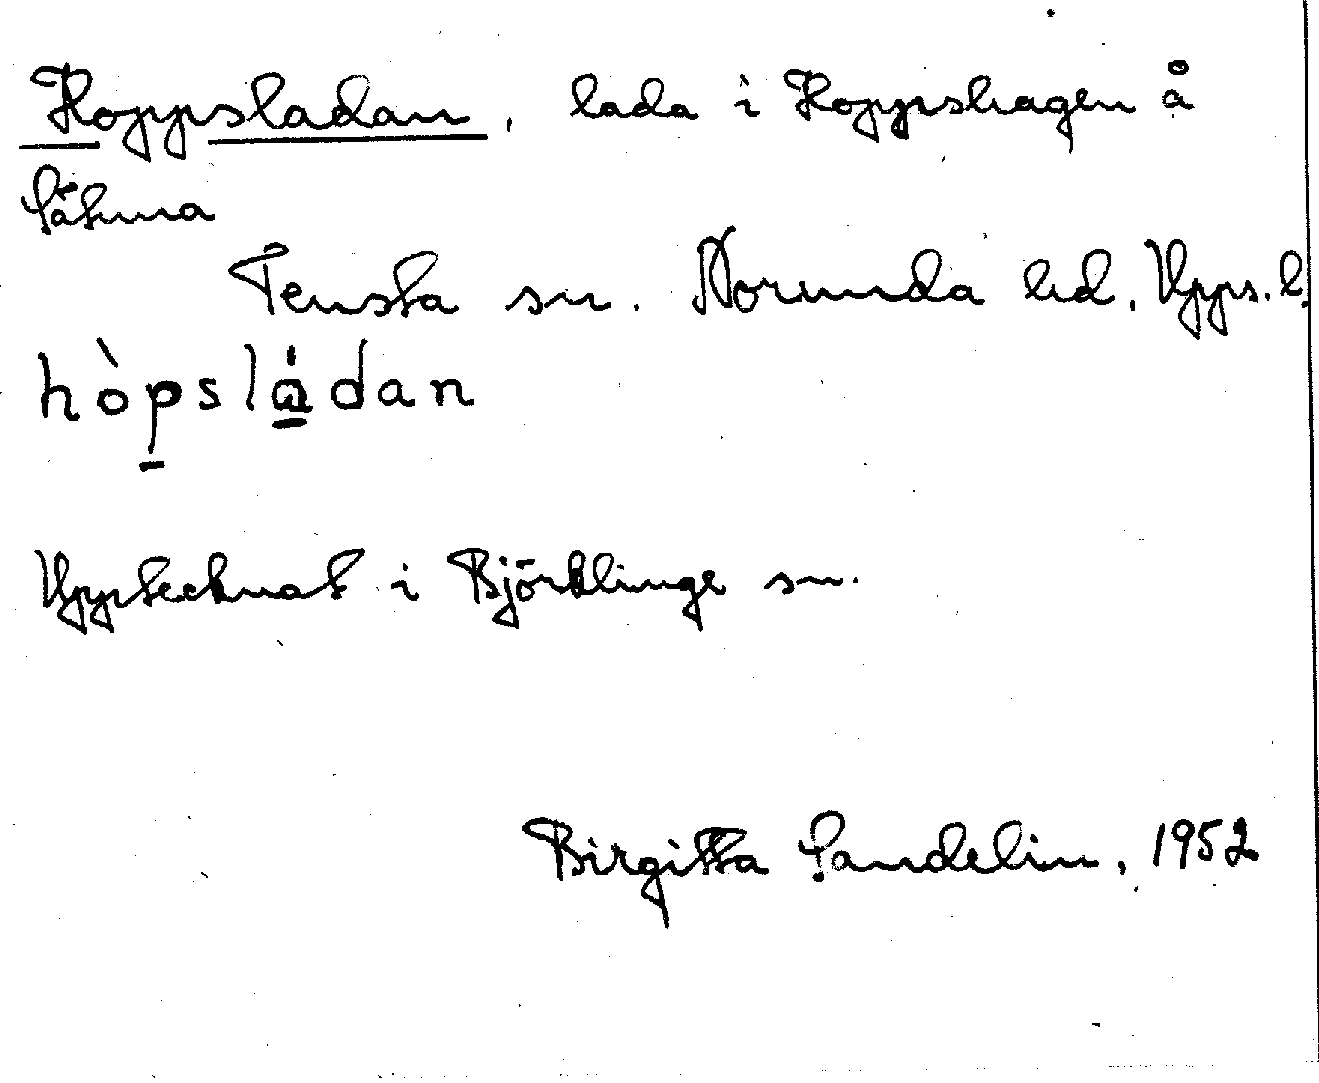 Hoppsladan, lada i Hoppshagen å
Sätuna
Tensta sn. Norunda hd, Upps. l.
hò̱psla̱̍dan
Upptecknat i Björklinge sn.
Birgitta Sandelin, 1952